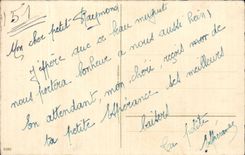 51
Mon cher petit Raymond
J'espère que ce beau muguet
nous portera bonheur a nous aussi hein!
En attendant mon chéri, reçois mon de
ta petite des meilleurs
baisers
Ta petite